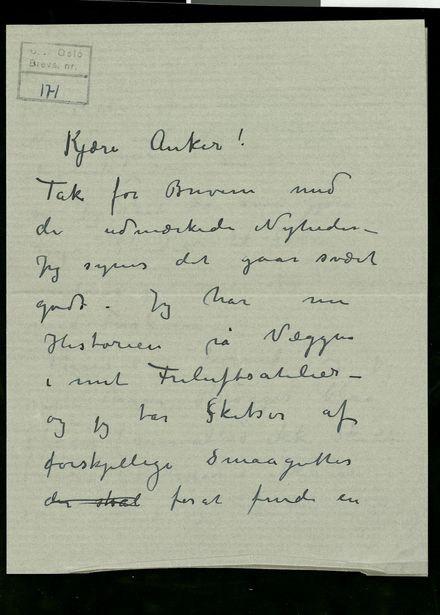 Oslo
Brevs. nr.
171
Kjære Anker!
Tak for Brevene med
de udmærkede Nyheder –
Jeg synes det gaar svært
godt. Jeg har nu
Historien på Væggen
i mit Friluftsatelier –
og jeg tar Skitser af
forskjellige Smaagutter
der skal forat finde en